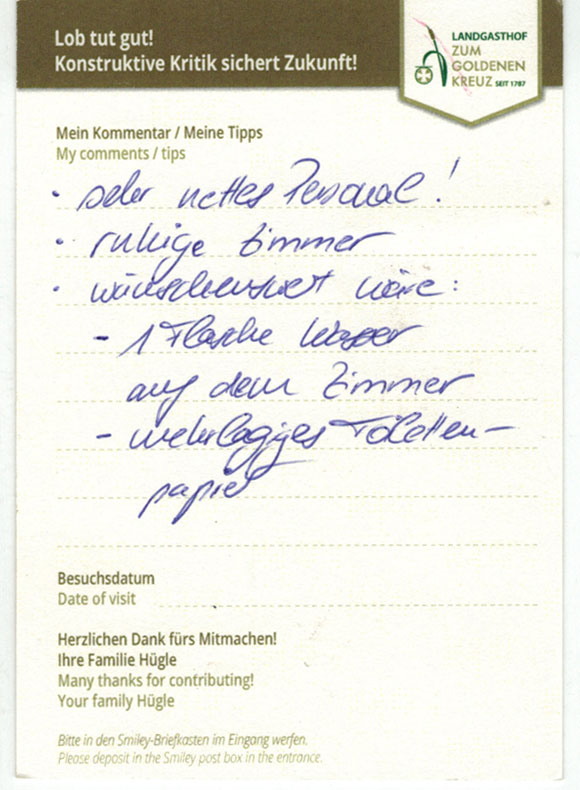 Lob tut gut!
Konstruktive Kritik sichert Zukunft!
LANDGASTHOF
ZUM
GOLDENEN
KREUZ SEIT 1787
Mein Kommentar / Meine Tipps
My comments / tips
· sehr nettes Personal!
· ruhige Zimmer
· wünschenswert wäre:
- 1 Flasche Wasser
auf dem Zimmer
- mehrlagiges Toiletten-
papier
Besuchsdatum
Date of visit
Herzlichen Dank fürs Mitmachen!
Ihre Familie Hügle
Many thanks for contributing!
Your family Hügle
Bitte in den Smiley-Briefkasten im Eingang werfen.
Please deposit in the Smiley post box in the entrance.